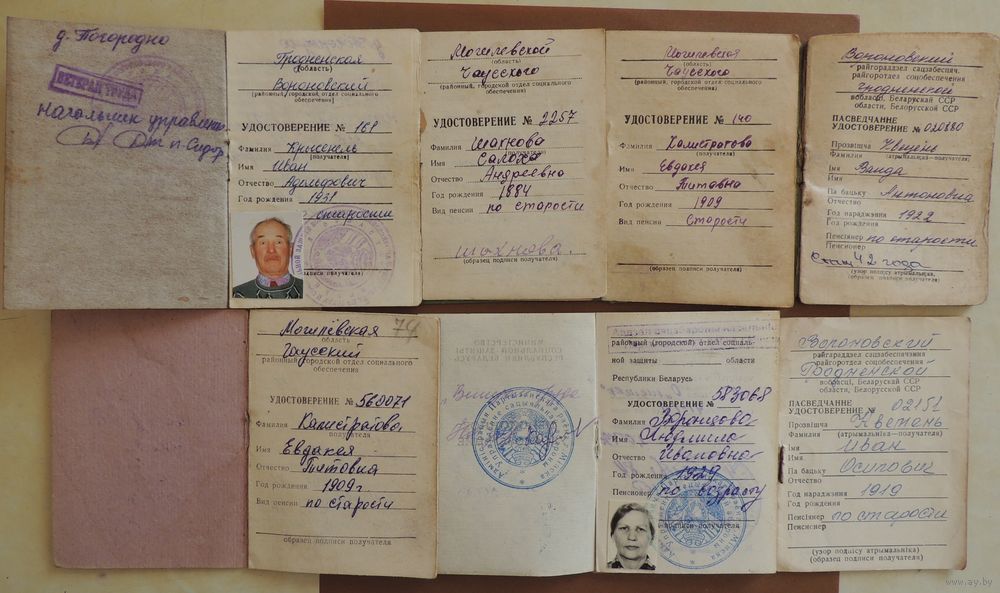 д. Погородно
ВЕТЕРАН ТРУДА
начальник управления
Гродненская
(область)
Вороновский
(районный, городской отдел социального
обеспечения)
УДОСТОВЕРЕНИЕ № 169
Фамилия
(получателя)
Имя Иван
Отчество Адольфович
Год рождения 1931
старости
Могилевской
(область)
Чаусского
(районный, городской отдел социального
обеспечения)
УДОСТОВЕРЕНИЕ № 2257
Фамилия Шахнова
(получателя)
Имя
Отчество Андреевна
Год рождения 1884
Вид пенсии по старости
(образец подписи получателя)
Могилевская
(область)
Чаусского
(районный, городской отдел социального
обеспечения)
УДОСТОВЕРЕНИЕ № 140
Фамилия Калистратова
(получателя)
Имя Евдакея
Отчество Титовна
Год рождения 1909
Вид пенсии Старости
(образец подписи получателя)
Вороновский
райгораддзел сацзабеспяч.
райгоротдел соцобеспечения
Гродненской
вобласці, Беларускай ССР
области, Белорусской ССР
ПАСВЕДЧАННЕ
УДОСТОВЕРЕНИЕ № 020880
Прозвішча
Фамилия (атрымальніка—получателя)
Імя Ванда
Имя
Па бацьку Антоновна
Отчество
Год нараджэння 1922
Год рождения
Пенсіянер по старости
Пенсионер
Стаж 42 года
(узор подпісу атрымальніка,
образец подписи получателя)
Могилёвская 74
область
Чаусский
районный городской отдел социального
обеспечения
УДОСТОВЕРЕНИЕ № 560071
Фамилия Калистратова
получателя
Имя Евдакея
Отчество Титовна
Год рождения 1909 г
Вид пенсии по старости
образец подписи получателя
районный (городской) отдел социаль-
ной защиты области
Республики Беларусь
УДОСТОВЕРЕНИЕ № 583068
Фамилия
Имя Людмила
Отчество Ивановна
Год рождения 1929
Пенсионер по возрасту
Вороновский
райгараддзел сацзабеспячэння
райгоротдел соцобеспечения
Гродненской
вобласці, Беларускай ССР
области, Белорусской ССР
ПАСВЕДЧАННЕ
УДОСТОВЕРЕНИЕ № 02151
Прозвішча
Фамилия (атрымальніка—получателя)
Імя Иван
Имя
Па бацьку Осипович
Отчество
Год нараджэння 1919
Год рождения
Пенсіянер по старости
Пенсионер
(узор подпісу атрымальніка)
(образец подписи получателя)
www.ay.by